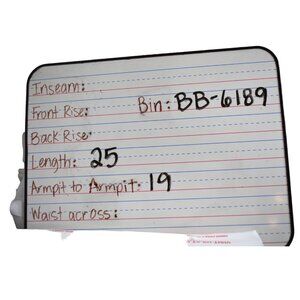 Inseam:
Front Rise: Bin: BB-6189
Back Rise:
Length: 25
Armpit to Armpit: 19
Waist across: